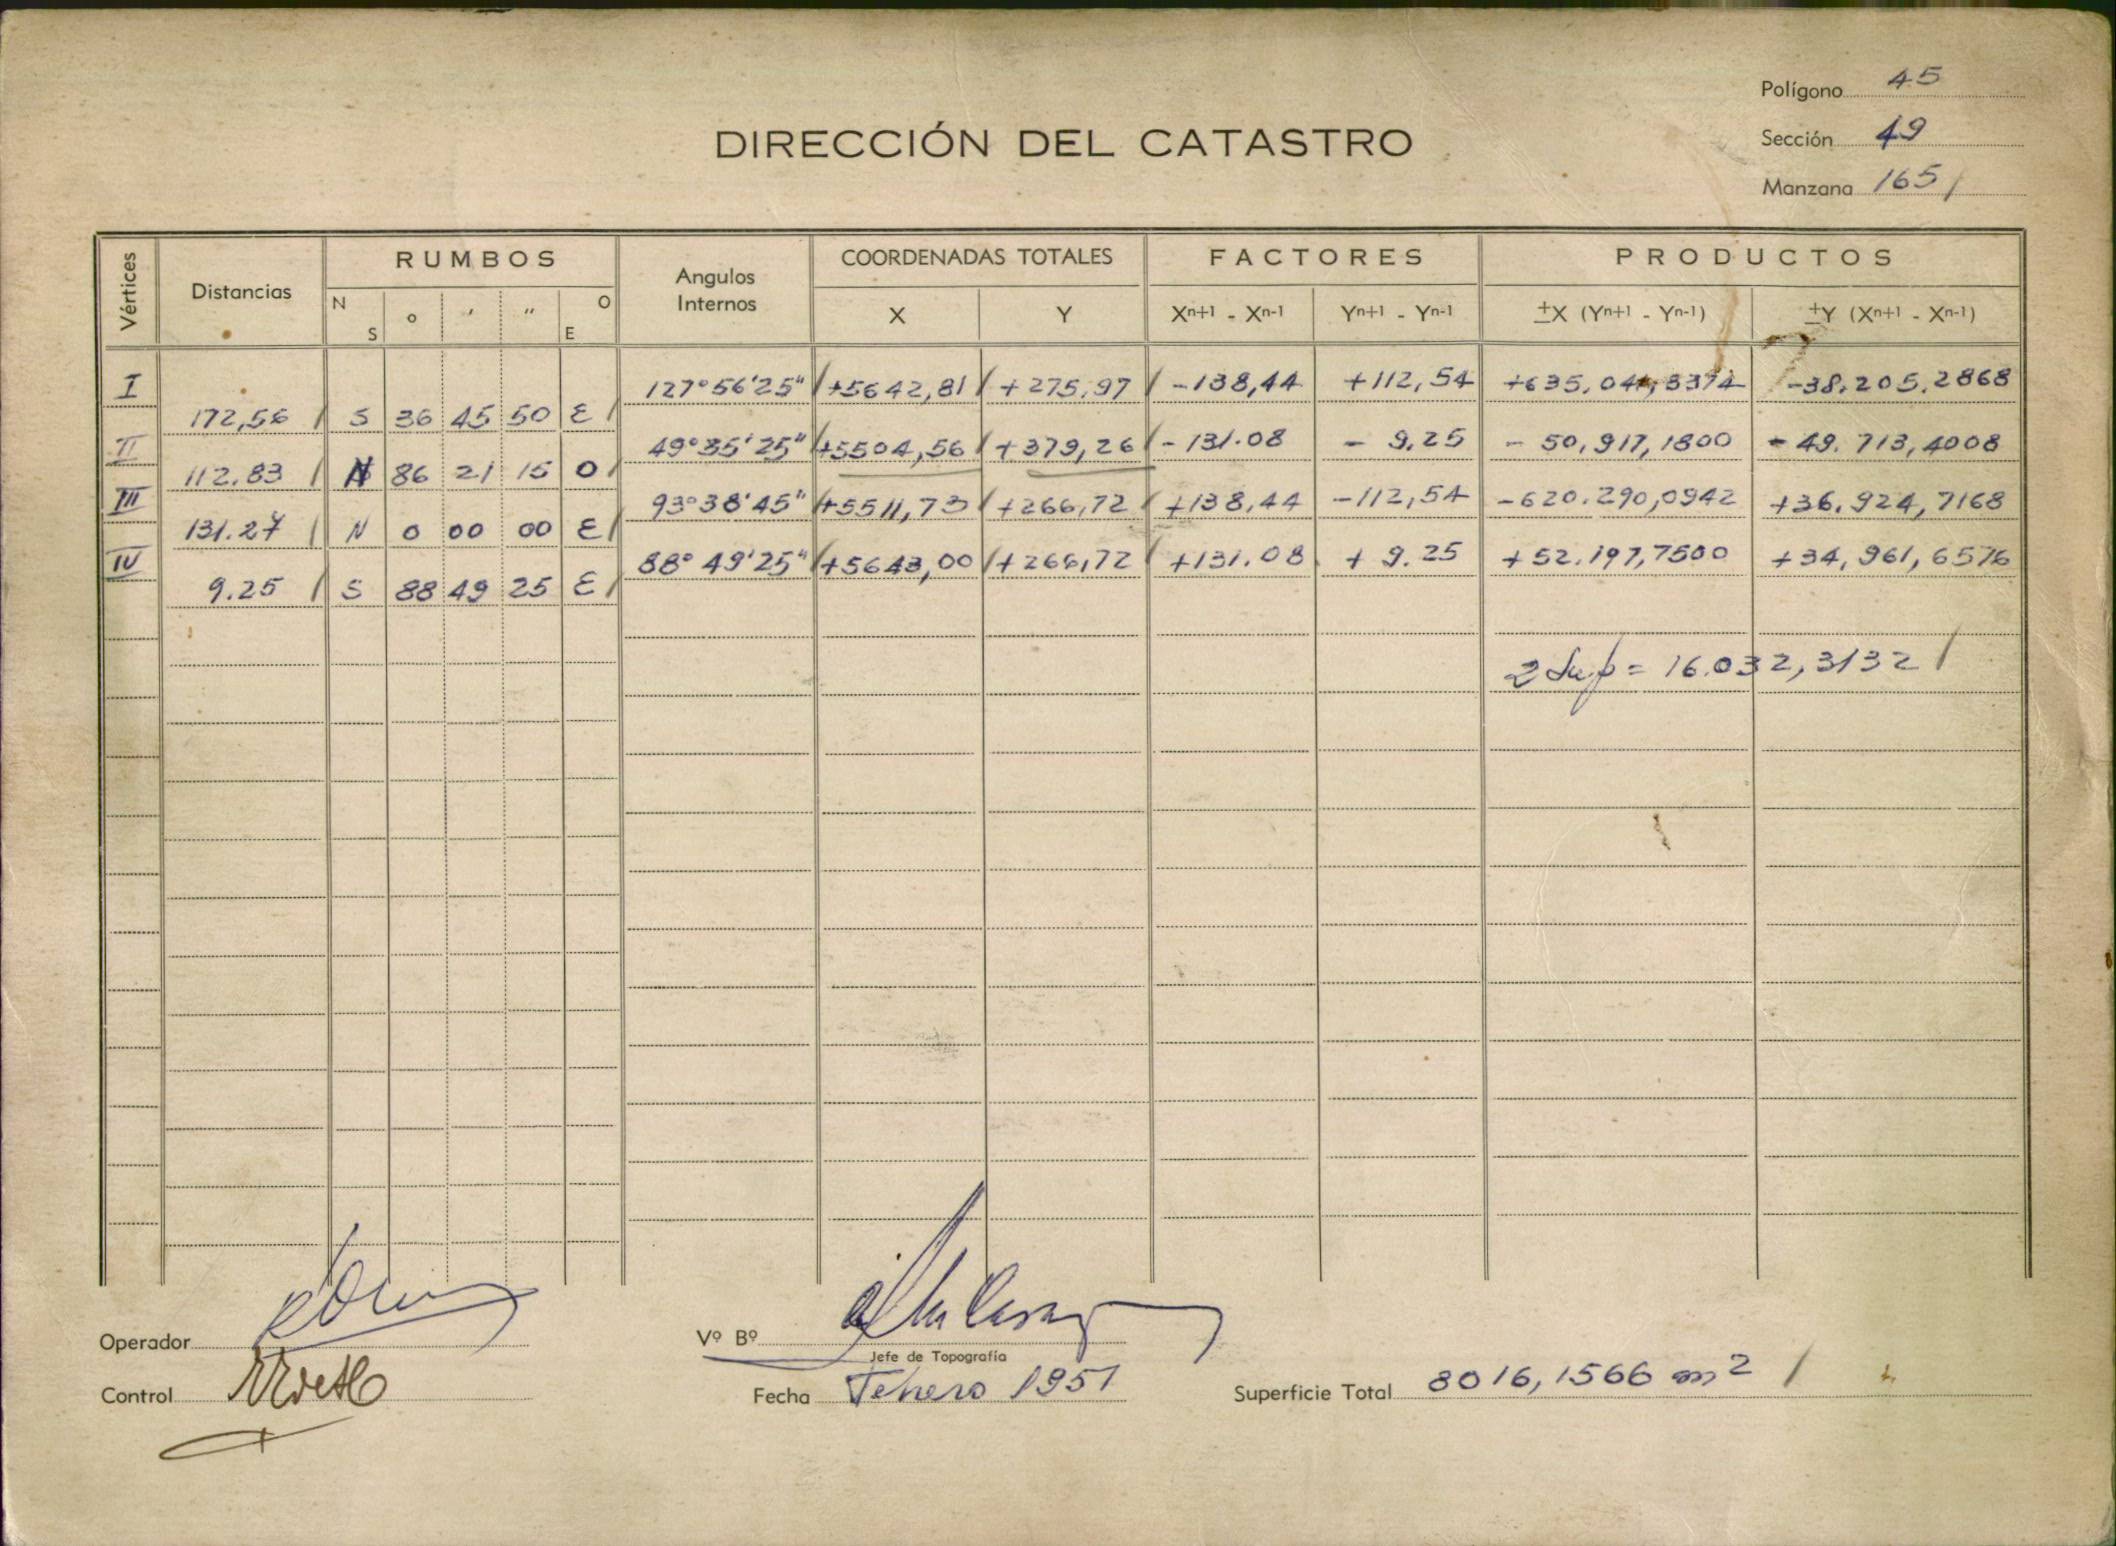 Polígono 45
DIRECCIÓN DEL CATASTRO
Sección 49
Manzana 165/
Vértices Distancias RUMBOS Angulos Internos COORDENADAS TOTALES FACTORES PRODUCTOS
N S o ′ ″ O E X Y Xn+1 - Xn-1 Yn+1 - Yn-1 ±X (Yn+1 - Yn-1) ±Y (Xn+1 - Xn-1)
I 127°56'25" +5642,81 +275,97 -138,44 +112,54 +635.041,8374 -38.205,2868
172,56 S 36 45 50 E
II 49°35'25" +5504,56 +379,26 -131.08 - 9.25 - 50,917,1800 - 49.713,4008
112.83 N 86 21 15 O
III 93°38'45" +5511,73 +266,72 +138,44 -112,54 -620.290,0942 +36.924,7168
131.27 N 0 00 00 E
IV 88°49'25" +5643,00 +266,72 +131.08 + 9.25 +52.197,7500 +34,961,6576
9.25 S 88 49 25 E
2 Sup = 16.032,3132
Operador
Vº Bº
Jefe de Topografía
Control
Fecha Febrero 1951
Superficie Total 8016,1566 m2